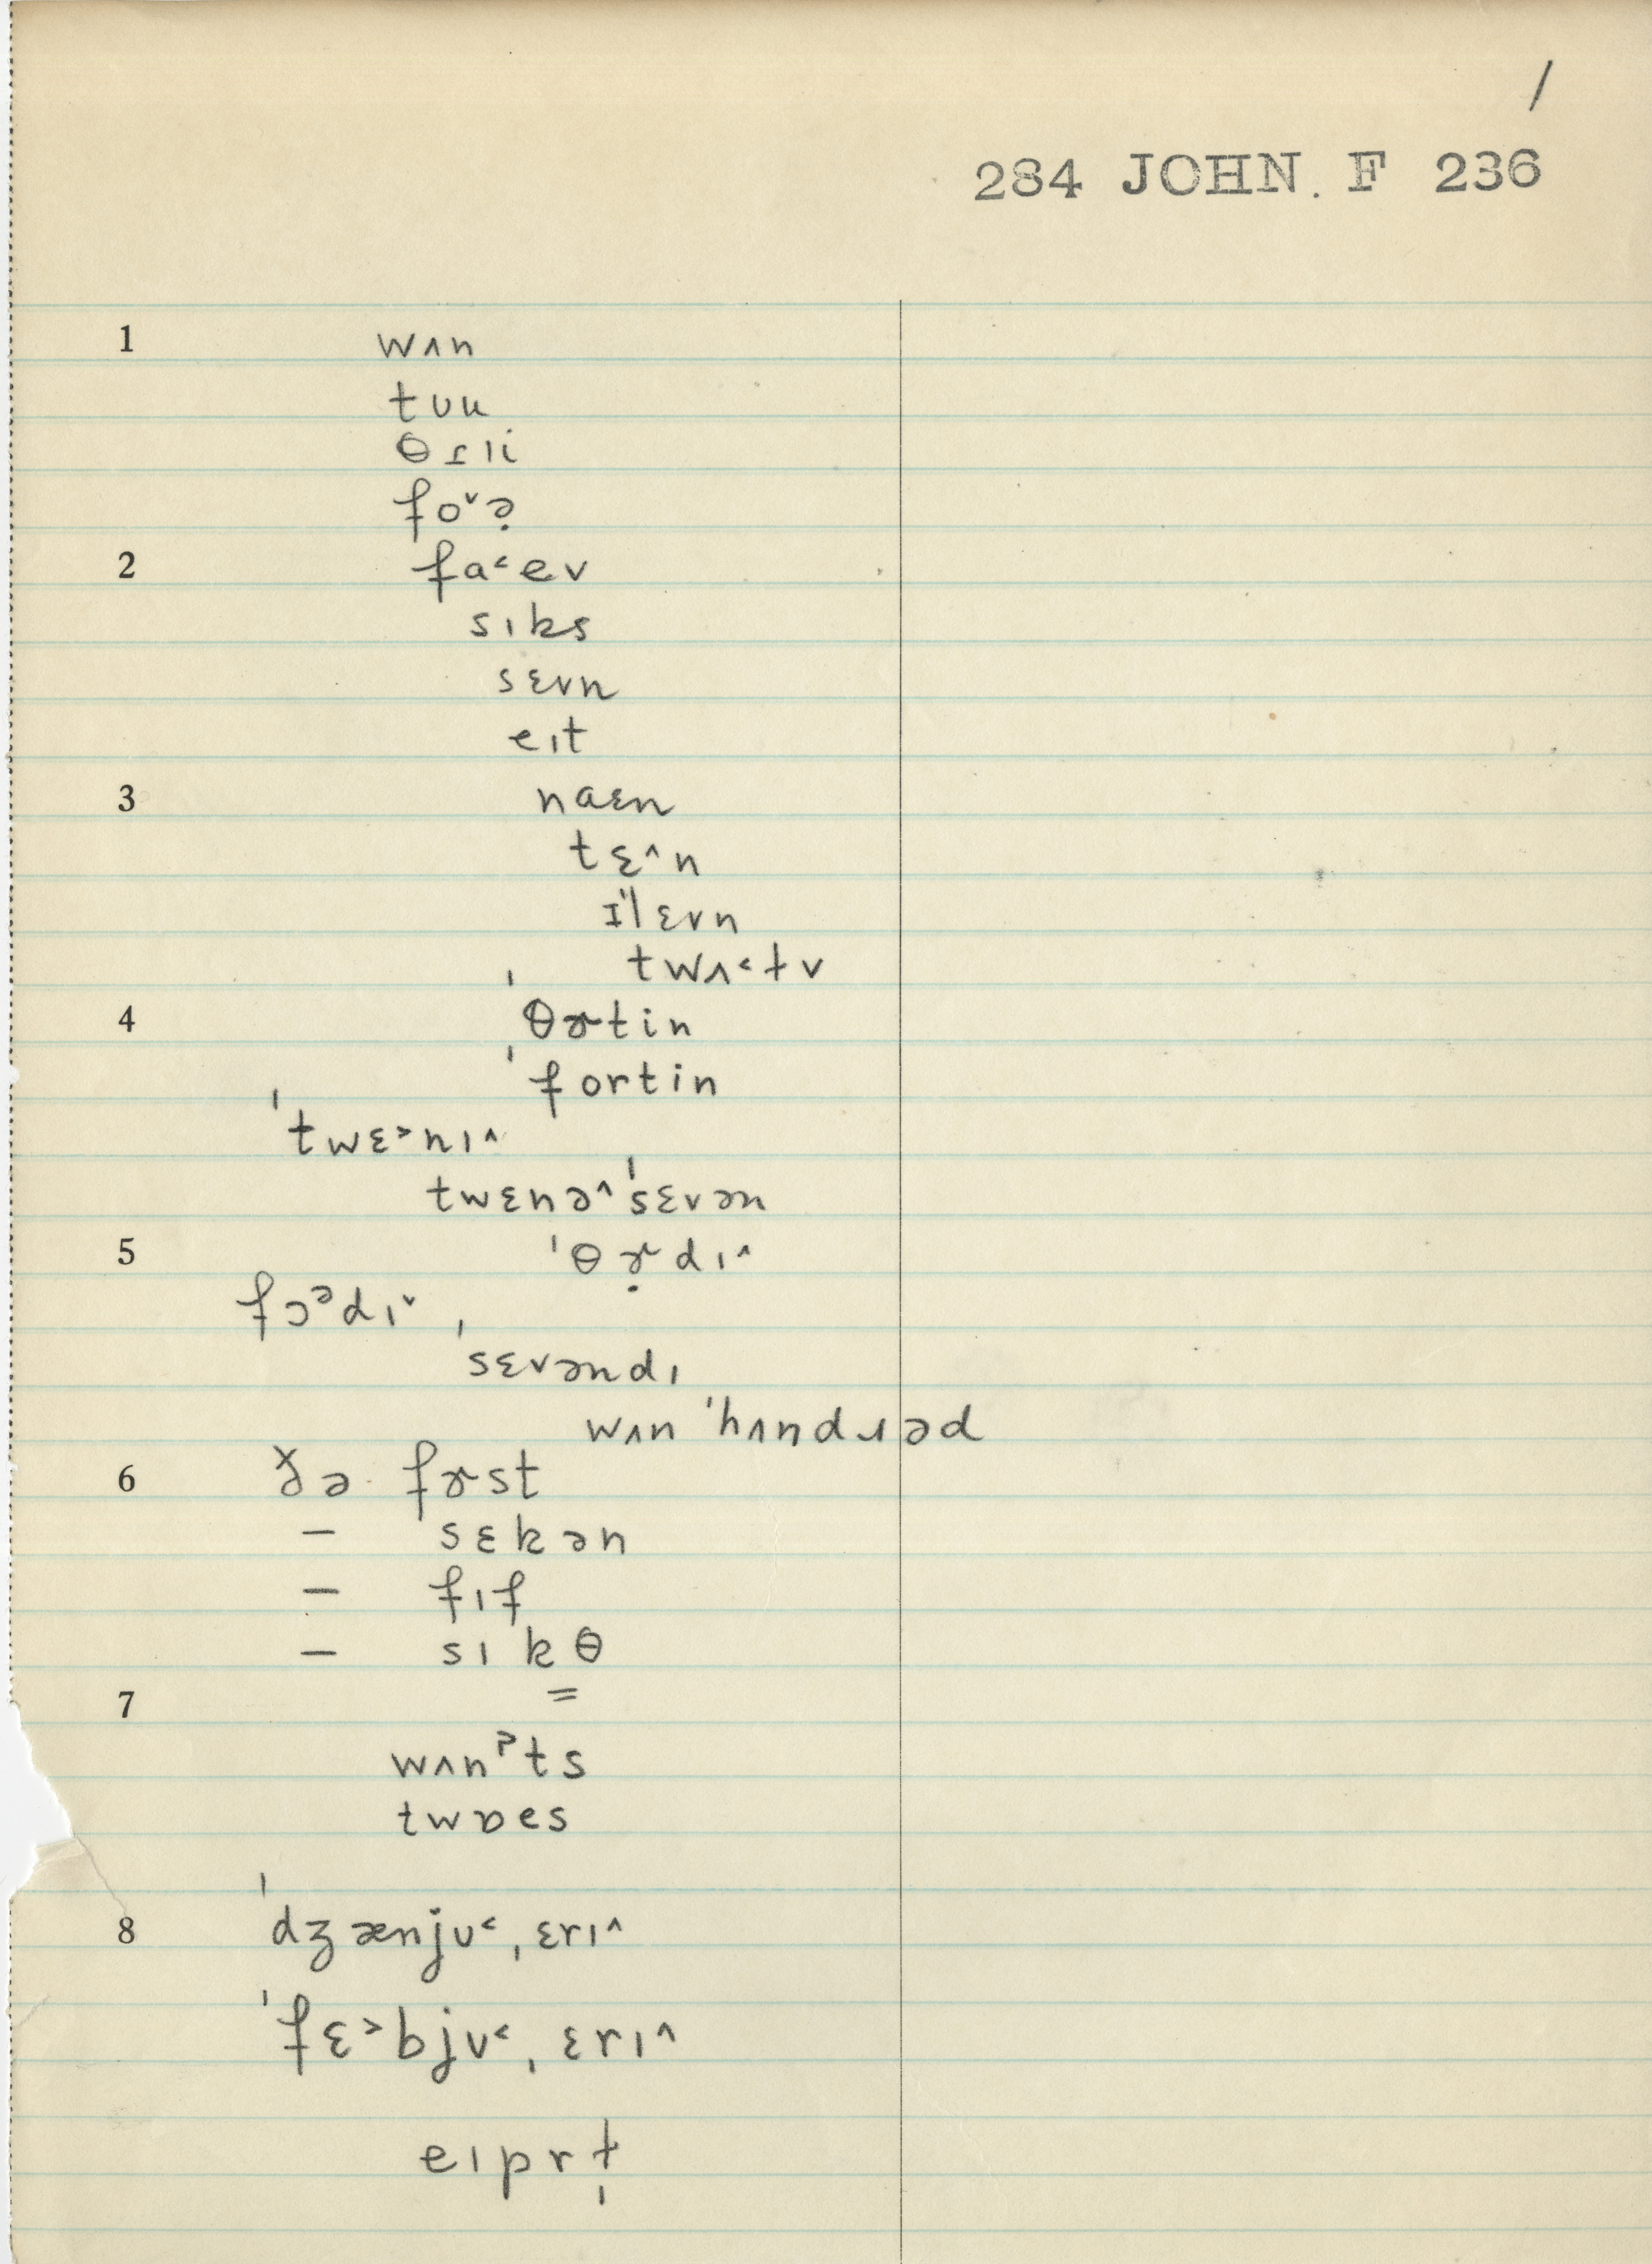 /
284 JOHN. F 236
1 wʌn
tʊu
θɾli
foˇə̣
2 fa˂ev
sıks
sɛvn
eıt
3 naɛn
tɛ^n
ɪˈlɛvn
twʌ˂tv
4 ˈθɚtin
ˈfortin
ˈtwɛ˃nı^
twɛnə^ˈsɛvən
5 ˈθɚ̣dı^
fɔᵊdıˇ
ˈsɛvəndı
wʌn ˈhʌndɹəd
6 ðə fɚst
— sɛkən
— fıf
— sıkθ
7 =
wʌnˀts
twɒes
8 ˈdʒænjʊ˂ˌɛrı^
ˈfɛ˃bjʊ˂ˌɛrı^
eıprḷ